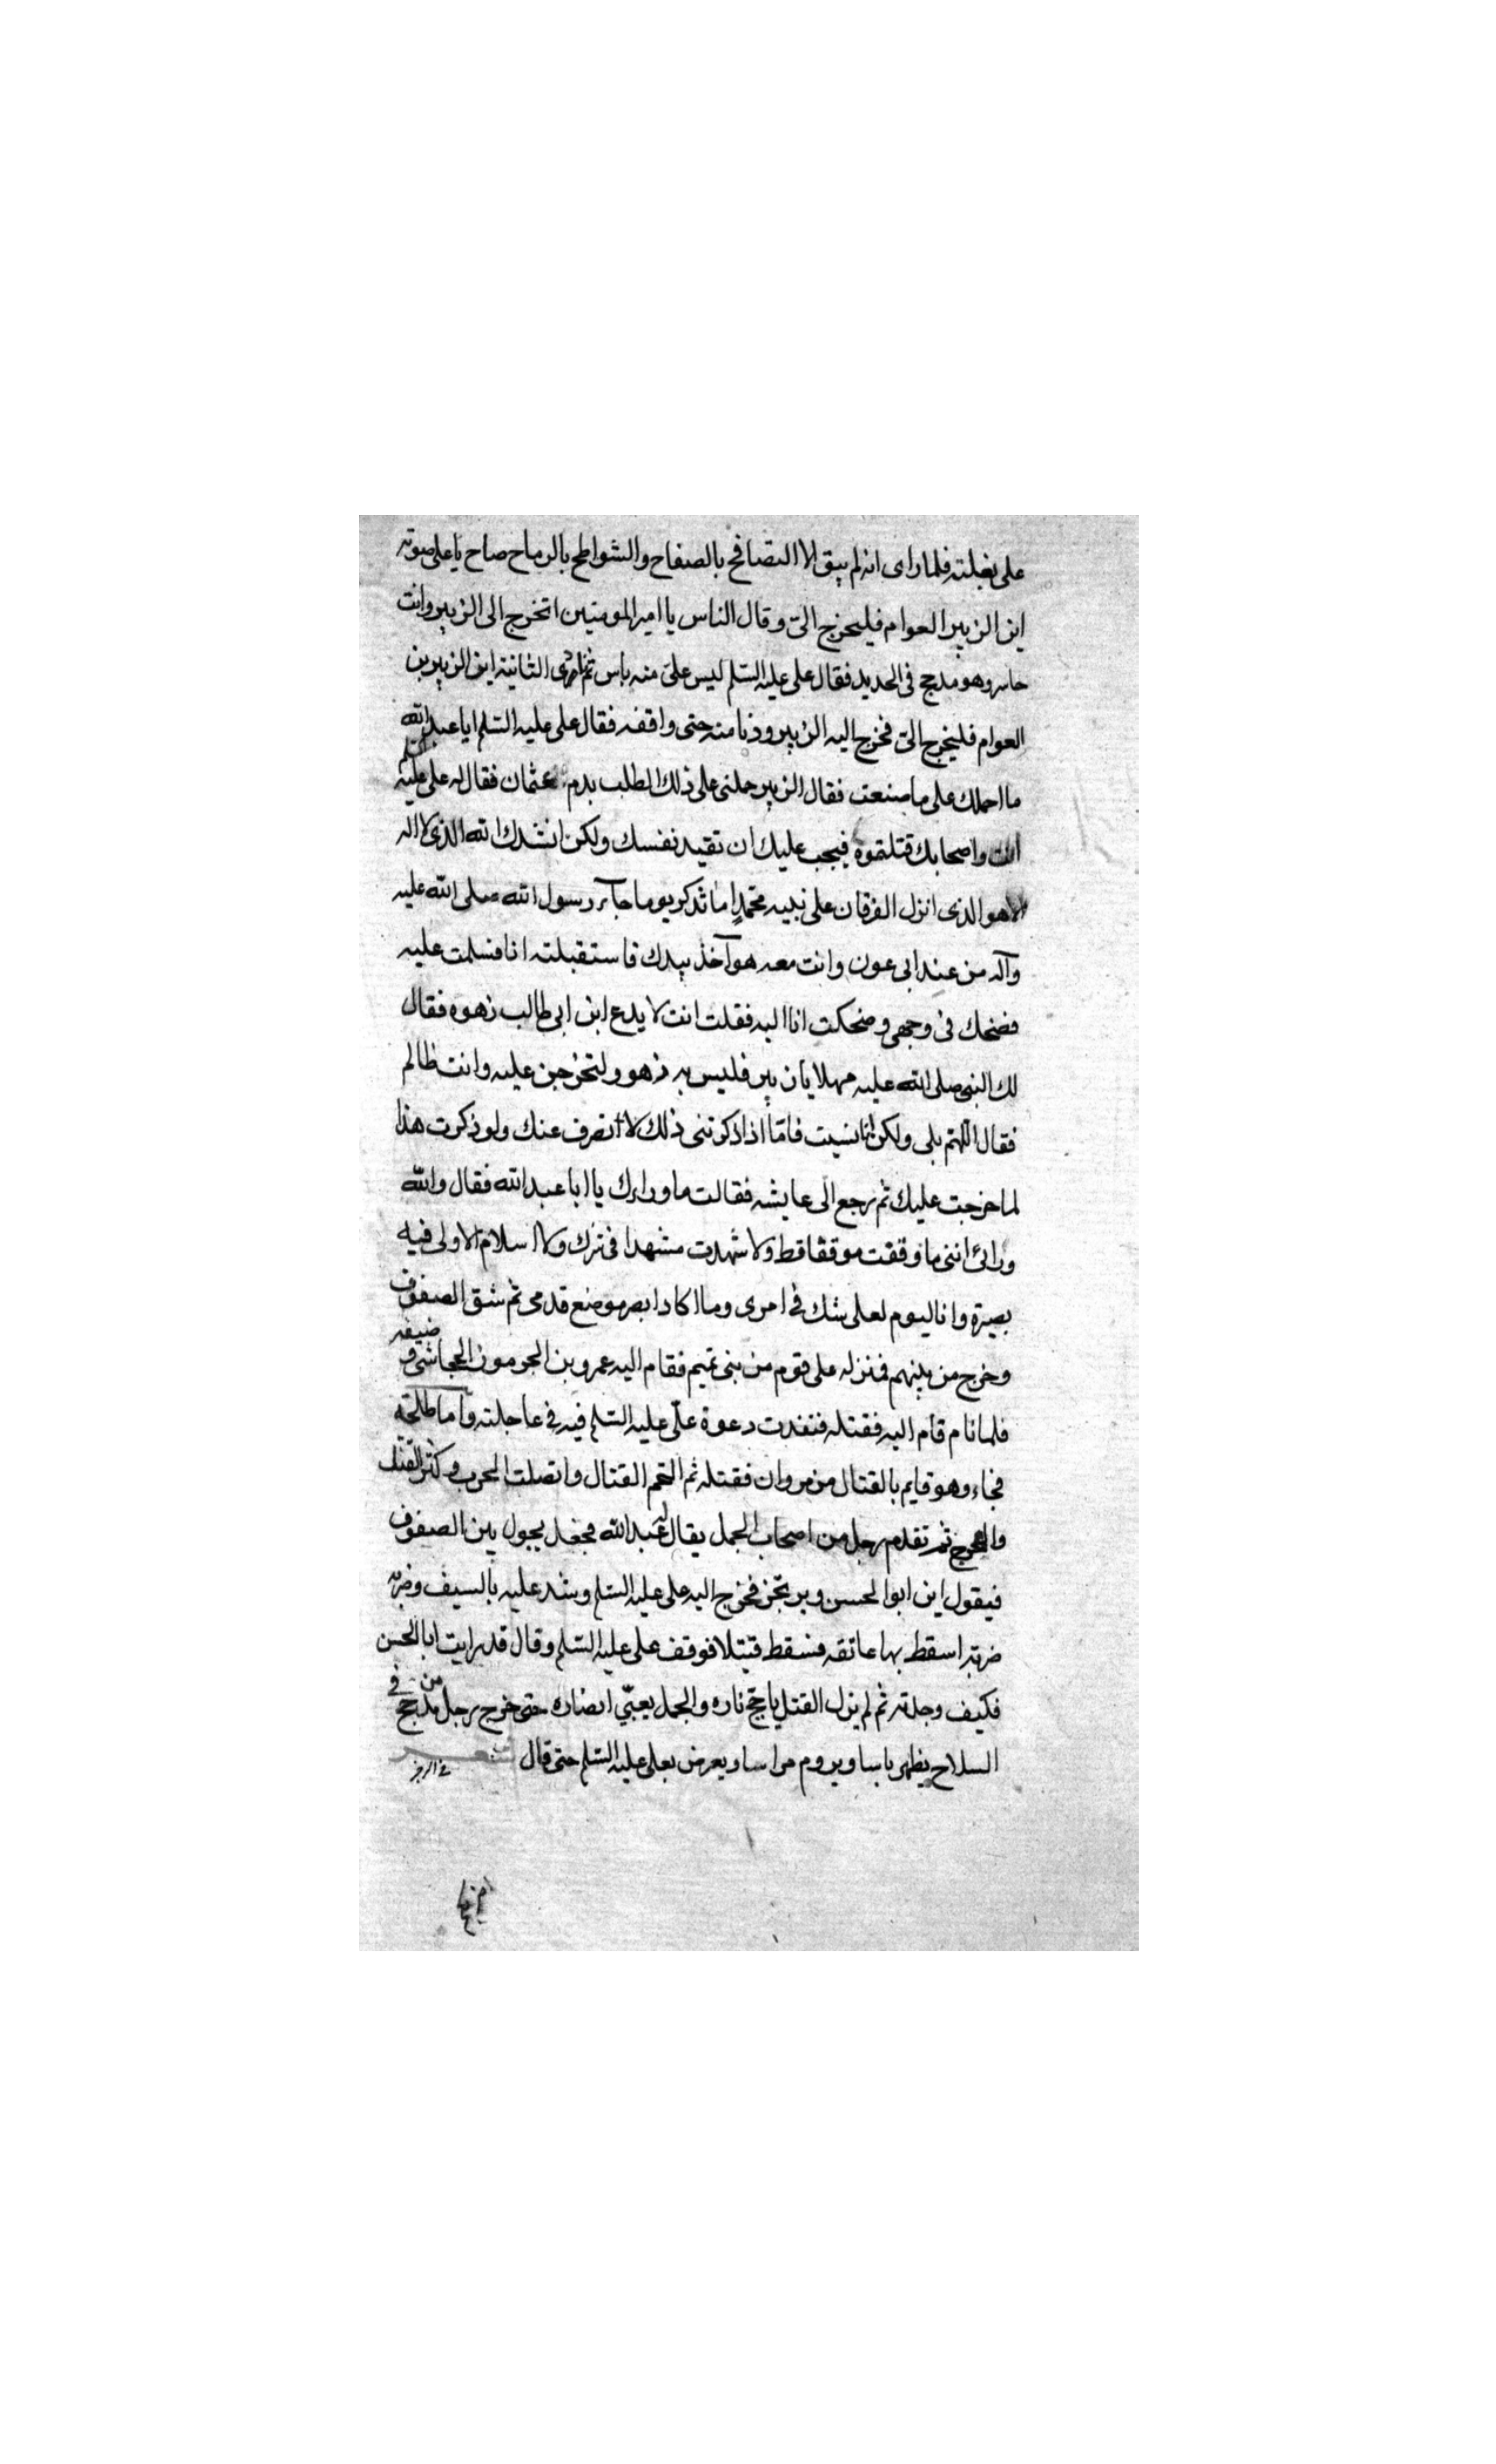 على بغلته فلما راى انه لم يبق الا التصافح بالصفاح والشواطح بالرماح صاح ياعلى صوته
اين الزبير العوام فليخرج الىّ وقال الناس يا امير المومنين اتخرج الى الزبير وانت
حاسر وهو مدجج فى الحديد فقال على عليه السّلم ليس علىّ منه باس ثم نادى الثانية اين الزبير بن
العوام فليخرج الىّ فخرج اليه الزبير ودنا منه حتى واقفه فقال على عليه السّلم ايا عبد الله
ما احملك على ما صنعت فقال الزبير حملنى على ذلك الطلب بدم عثمان فقال له على عليه السلم
انت واصحابك قتلتموه فيجب عليك ان تقيد نفسك ولكن انشدك الله الذى لا اله
الا هو الذى انزل الفرقان على نبيه محمّدٍ اما تذكر يوما جاء رسول الله صلى الله عليه
وآله من عند ابى عون وانت معه هو آخذ بيدك فاستقبلته انا فسلمت عليه
فضحك فى وجهى وضحكت انا اليه فقلت انت لا يدع ابن ابى طالب زهوه فقال
لك النبى صلى الله عليه مهلا يا زبير فليس به زهو ولتخرجن عليه وانت ظالم
فقال اللّهم بلى ولكن انا نسيت فامّا اذا ذكرتنى ذلك لا انصرف عنك ولو ذكرت هذا
لما خرجت عليك ثم رجع الى عايشه فقالت ما وراءك يا ابا عبد الله فقال والله
ورائى اننى ما وقفت موقفا قط ولا شهدت مشهدا فى شرك ولا اسلام الا ولى فيه
بصيرة وانا اليوم لعلى شك فى امرى وما اكاد ابصر موضع قدمى ثم شق الصفوف
وخرج من بينهم فنزله على قوم من بنى تميم فقام اليه عمرو بن الجرموز المجاشى وضيفه
فلما نام قام اليه فقتله فنفذت دعوة علّى عليه السّلم فيه فى عاجلته واما طلحة
فجاءه وهو قايم بالقتال من مروان فقتله ثم التحم القتال واتصلت الحرب وكثر القتل
والجرح ثم تقدم رجل من اصحاب الجمل يقال له عبد الله فجعل يجول بين الصفوف
فيقول اين ابو الحسن ويرتجز فخرج اليه على عليه السّلم وشد عليه بالسيف وضربه
ضربة اسقط بها عاتقه فسقط قتيلا فوقف على عليه السّلم وقال قد رايت ابا الحسن
فكيف وجدته ثم لم يزل القتل ياجّج ناره والجمل يعبّى انصاره حتى خرج رجل من مدجج فى
السلاح يظهر باسا ويروم مراسا ويعرض بعلى عليه السّلم حتى قال شعر
فى الرجز